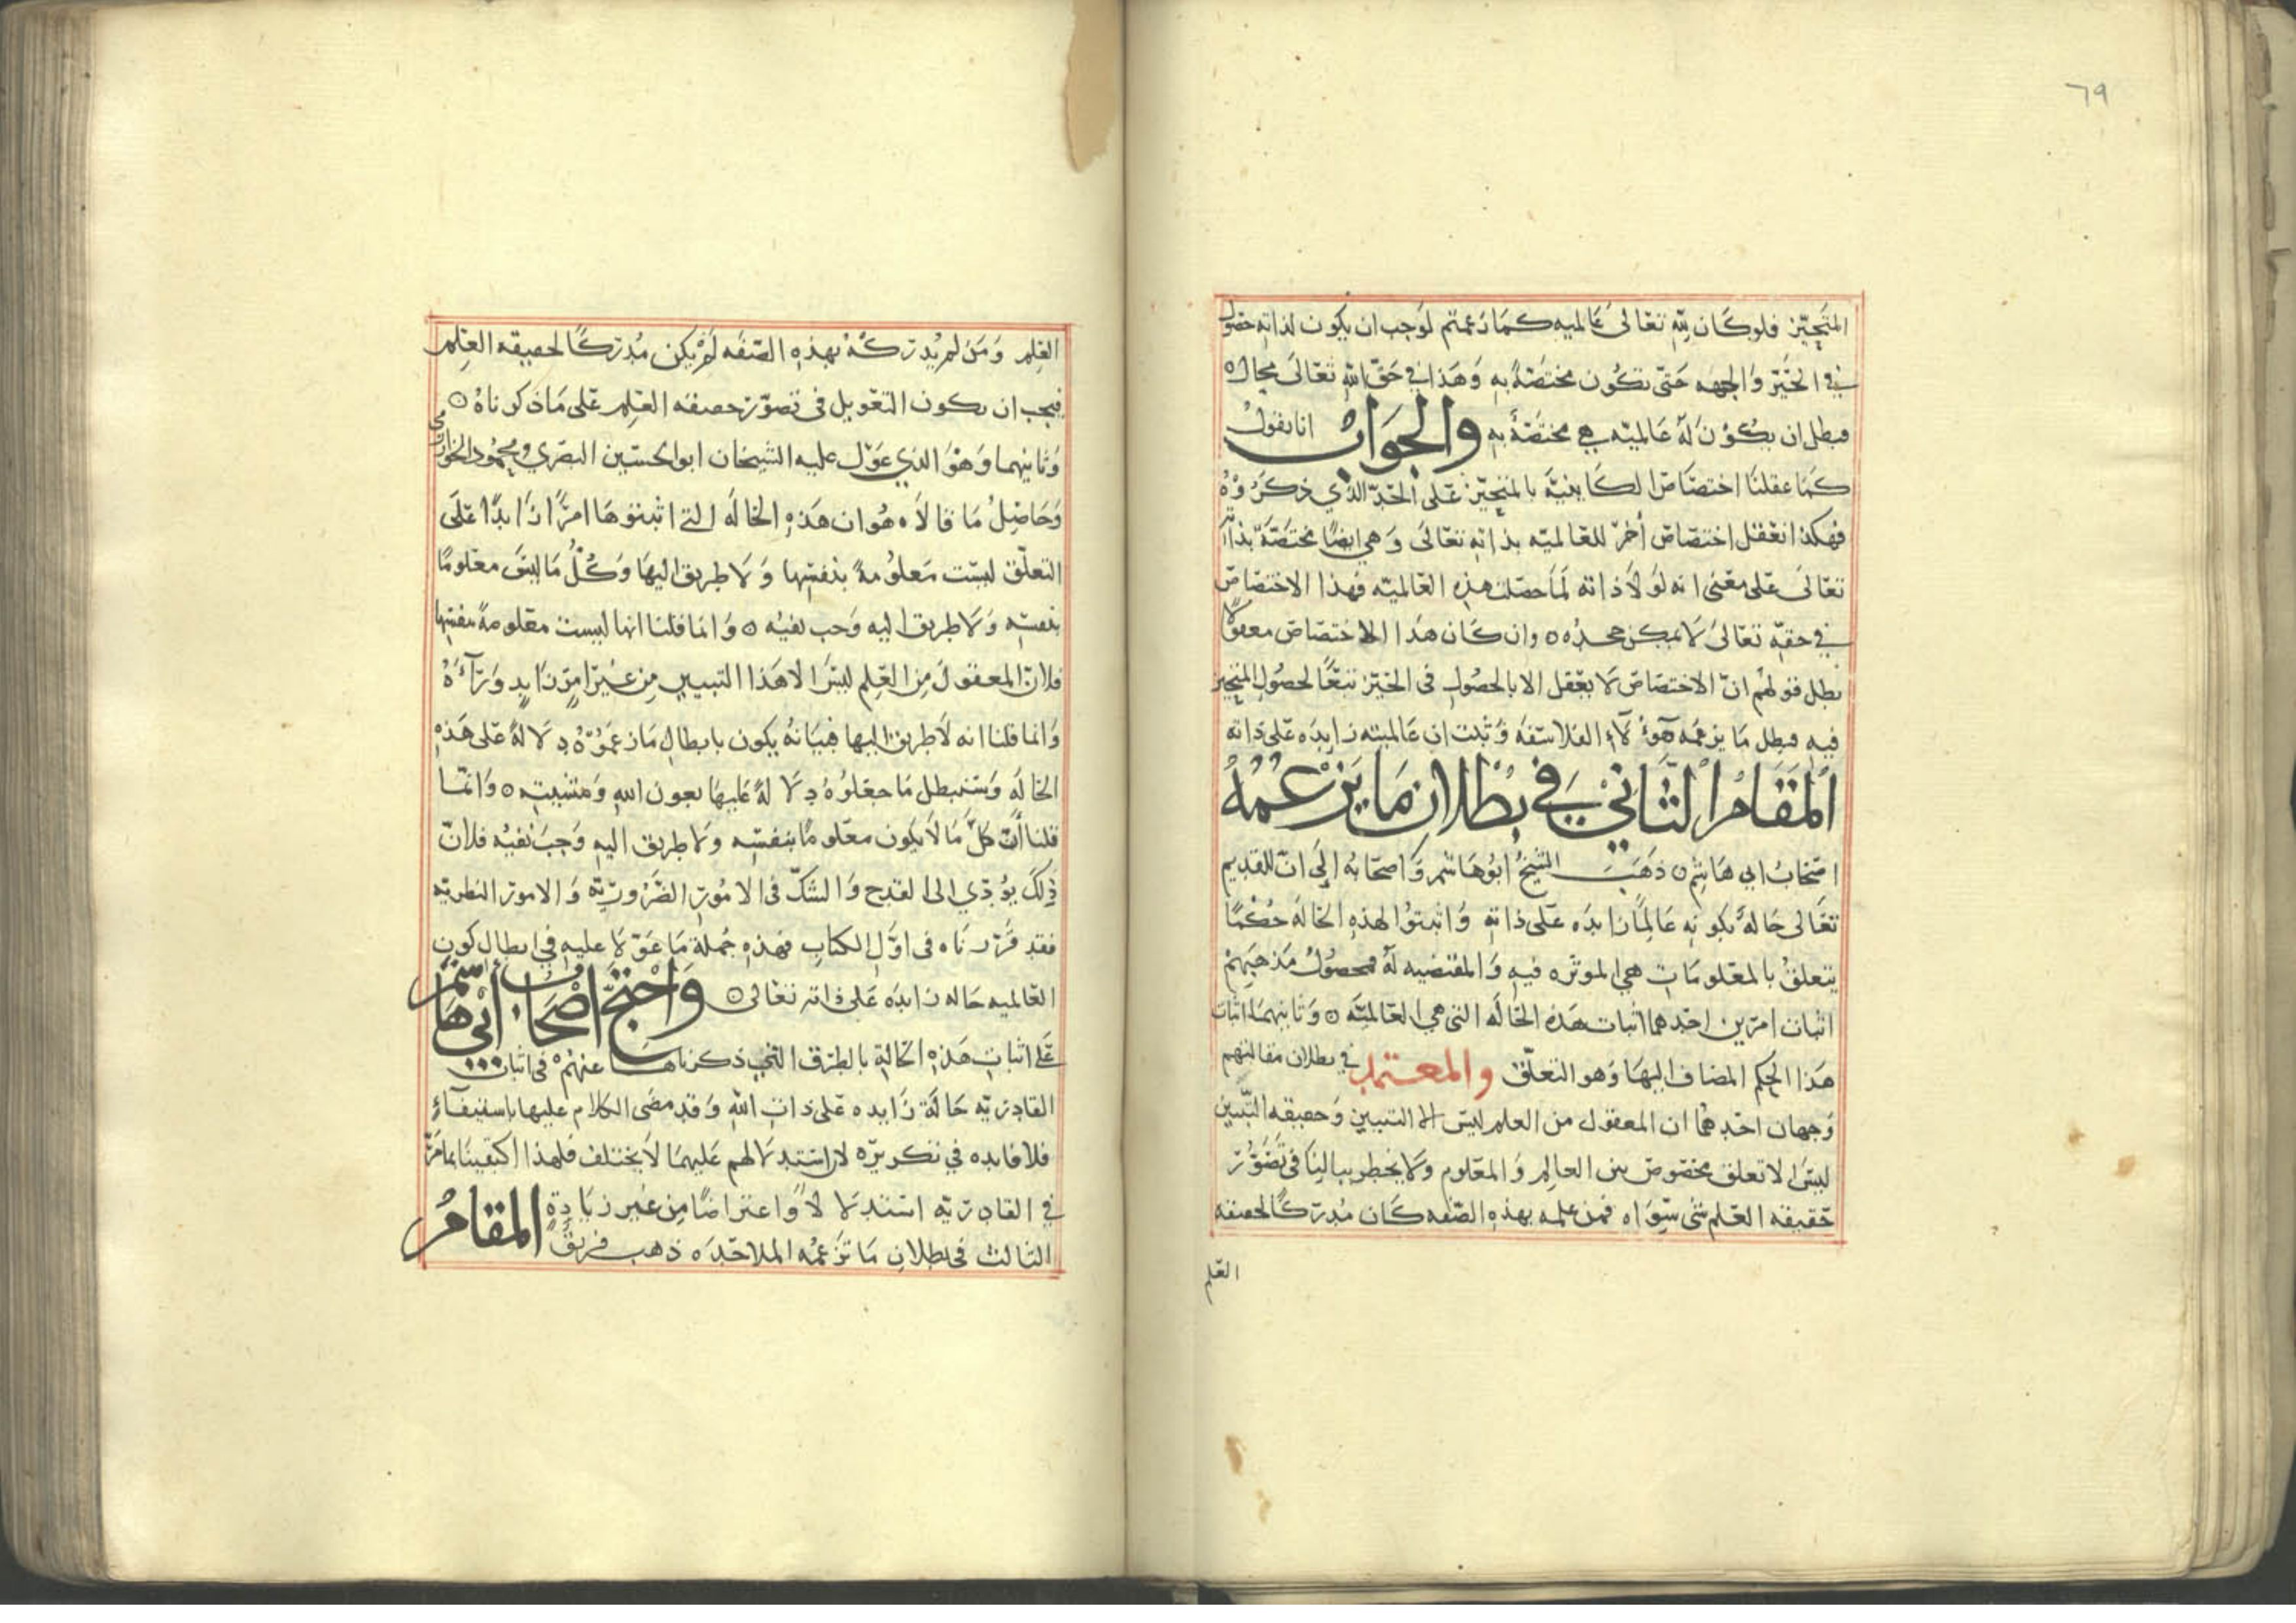 ٦٩
المتحيز فلو كان لله تعالى عالميه كما زعمتم لوجب ان يكون لذاته حصول
في الحيز والجهه حتى تكون مختصة به وهذا في حق الله تعالى محال
فبطل ان يكون له عالميته هي مختصة به والجواب انا نقول
كما عقلنا اختصاص الكاينية بالمتحيز على الحد الذي ذكروه
فهكذا نعقل اختصاص اخر للعالميه بذاته تعالى وهي ايضا مختصة بذاته
تعالى على معنى انه لولا ذاته لما حصلت هذه العالميه فهذا الاختصاص
في حقه تعالى لا يمكن جحده وان كان هذا الاختصاص معقولا
بطل قولهم ان الاختصاص لا يعقل الا بالحصول في الحيز تبعا لحصول المتحيز
فيه فبطل ما يزعمه هؤلاء الفلاسفه وثبت ان عالميته زايده على ذاته
المقام الثاني في بطلان ما يزعمه
اصحاب ابي هاشم ذهب الشيخ ابو هاشم واصحابه الى ان للقديم
تعالى حالة بكونه عالما زايده على ذاته واثبتوا لهذه الحاله حكما
يتعلق بالمعلومات هي الموثره فيه والمقتضيه له فحصول مذهبهم
اثبات امرين احدهما اثبات هذه الحاله التي هي العالمية وثانيهما اثبات
هذا الحكم المضاف اليها وهو التعلق والمعتمد في بطلان مقالتهم
وجهان احدهما ان المعقول من العلم ليس الا التبيين وحقيقه التبيين
ليس الا تعلق مخصوص بين العالم والمعلوم ولا يخطر ببالنا في تصور
حقيقه العلم شي سواه فمن علمه بهذه الصفه كان مدركا لحقيقه
العلم
العلم ومن لم يدركه بهذه الصفه لم يكن مدركا لحقيقه العلم
فيجب ان يكون التعويل في تصور حقيقه العلم على ما ذكرناه
وثانيهما وهو الذي عول عليه الشيخان ابو الحسين البصري ومحمود الخوارزمي
وحاصل ما قالاه هو ان هذه الحاله التي اثبتوها امرا زايدا على
التعلق ليست معلومة بنفسها ولا طريق اليها وكل ما ليس معلوما
بنفسه ولا طريق اليه وجب نفيه وانما قلنا انها ليست معلومة بنفسها
فلان المعقول من العلم ليس الا هذا التبيين من غير امر زايد وراءه
وانما قلنا انه لا طريق اليها فبيانه يكون بابطال ما زعموه دلالة على هذه
الحاله وسنبطل ما جعلوه دلالة عليها بعون الله ومشيته وانما
قلنا ان كل ما لا يكون معلوما بنفسه ولا طريق اليه وجب نفيه فلان
ذلك يؤدي الى القدح والشك في الامور الضروريه والامور النظريه
فقد قررناه في اول الكتاب فهذه جملة ما عولا عليه في ابطال كون
العالميه حاله زايده على ذاته تعالى واحتج اصحاب ابي هاشم
على اثبات هذه الحالة بالطرق التي ذكرناها عنهم في اثبات
القادريه حالة زايده على ذات الله وقد مضى الكلام عليها باستيفاء
فلا فايده في تكريره لان استدلالهم عليهما لا يختلف فلهذا اكتفينا بما مر
في القادريه استدلالا واعتراضا من غير زيادة المقام
الثالث في بطلان ما تزعمه الملاحده ذهب فريق